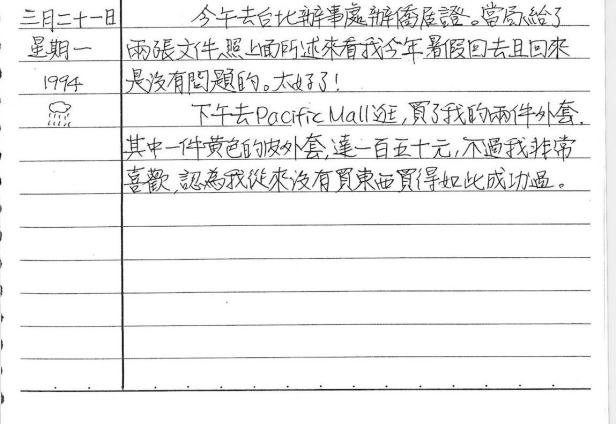 三月二十一日
星期一
1994
今午去台北辦事處辦僑居證。當局給了
兩張文件,照上面所述來看我今年暑假回去且回來
是沒有問題的。太好了!
下午去Pacific Mall逛,買了我的兩件外套.
其中一件黃色的皮外套,達一百五十元,不過我非常
喜歡,認為我從來沒有買東西買得如此成功過。